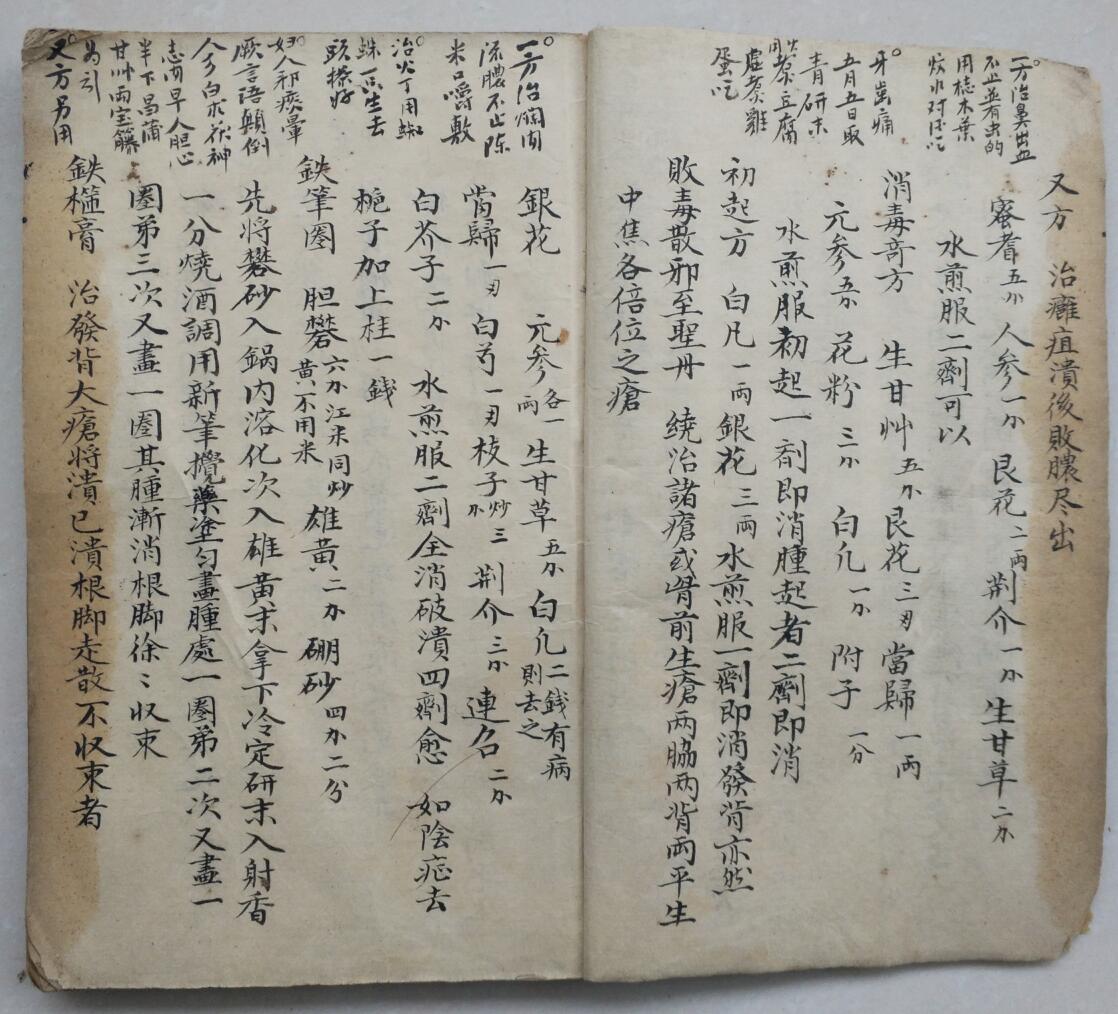 一方治鼻出血
不止並有虫的
用梔木葉
煎水对酒吃
牙齒痛
五月五日取
青研末
煮豆腐
煮雞
蛋吃
又方 治癰疽潰後敗膿尽出
蜜耆五分人参一分艮花二両荆介一分生甘草二分
水煎服二劑可以
消毒奇方 生甘艸五分艮花三刃當歸一両
元参五分花粉三分 白凢一分 附子一分
水煎服初起一剤即消腫起者二劑即消
初起方 白凡一両銀花三両水煎服一劑即消發背亦然
敗毒散邪至聖丹 統治諸瘡或胷前生瘡两脇两背両平生
中焦各倍位之瘡
一方治爛肉
流膿不止陈
米口嚼敷
治火丁用蜘
蛛一只生去
頭搽好
妇人邪疾暈
厥言語顛倒
今方白术茯神
志肉早人胆心
半下昌蒲
甘艸両宝籐
為引
又方另用
銀花 元参各一両生甘草五分白凢二錢有病則去之
當歸一刃白芍一刃枝子炒三分荆介三分連召二分
白芥子二分 水煎服二劑全消破潰四劑愈 如陰症去
梔子加上桂一錢
鉄筆圈 胆礬六分江米同炒黄不用米雄黄二分硼砂四分二分
先將礬砂入鍋内溶化次入雄黄末拿下冷定研末入射香
一分燒酒調用新筆攪藥塗匀畫腫處一圈弟二次又畫一
圈弟三次又畫一圈其腫漸消根脚徐〻收束
鉄櫳膏 治發背大瘡将潰已潰根脚走散不収束者